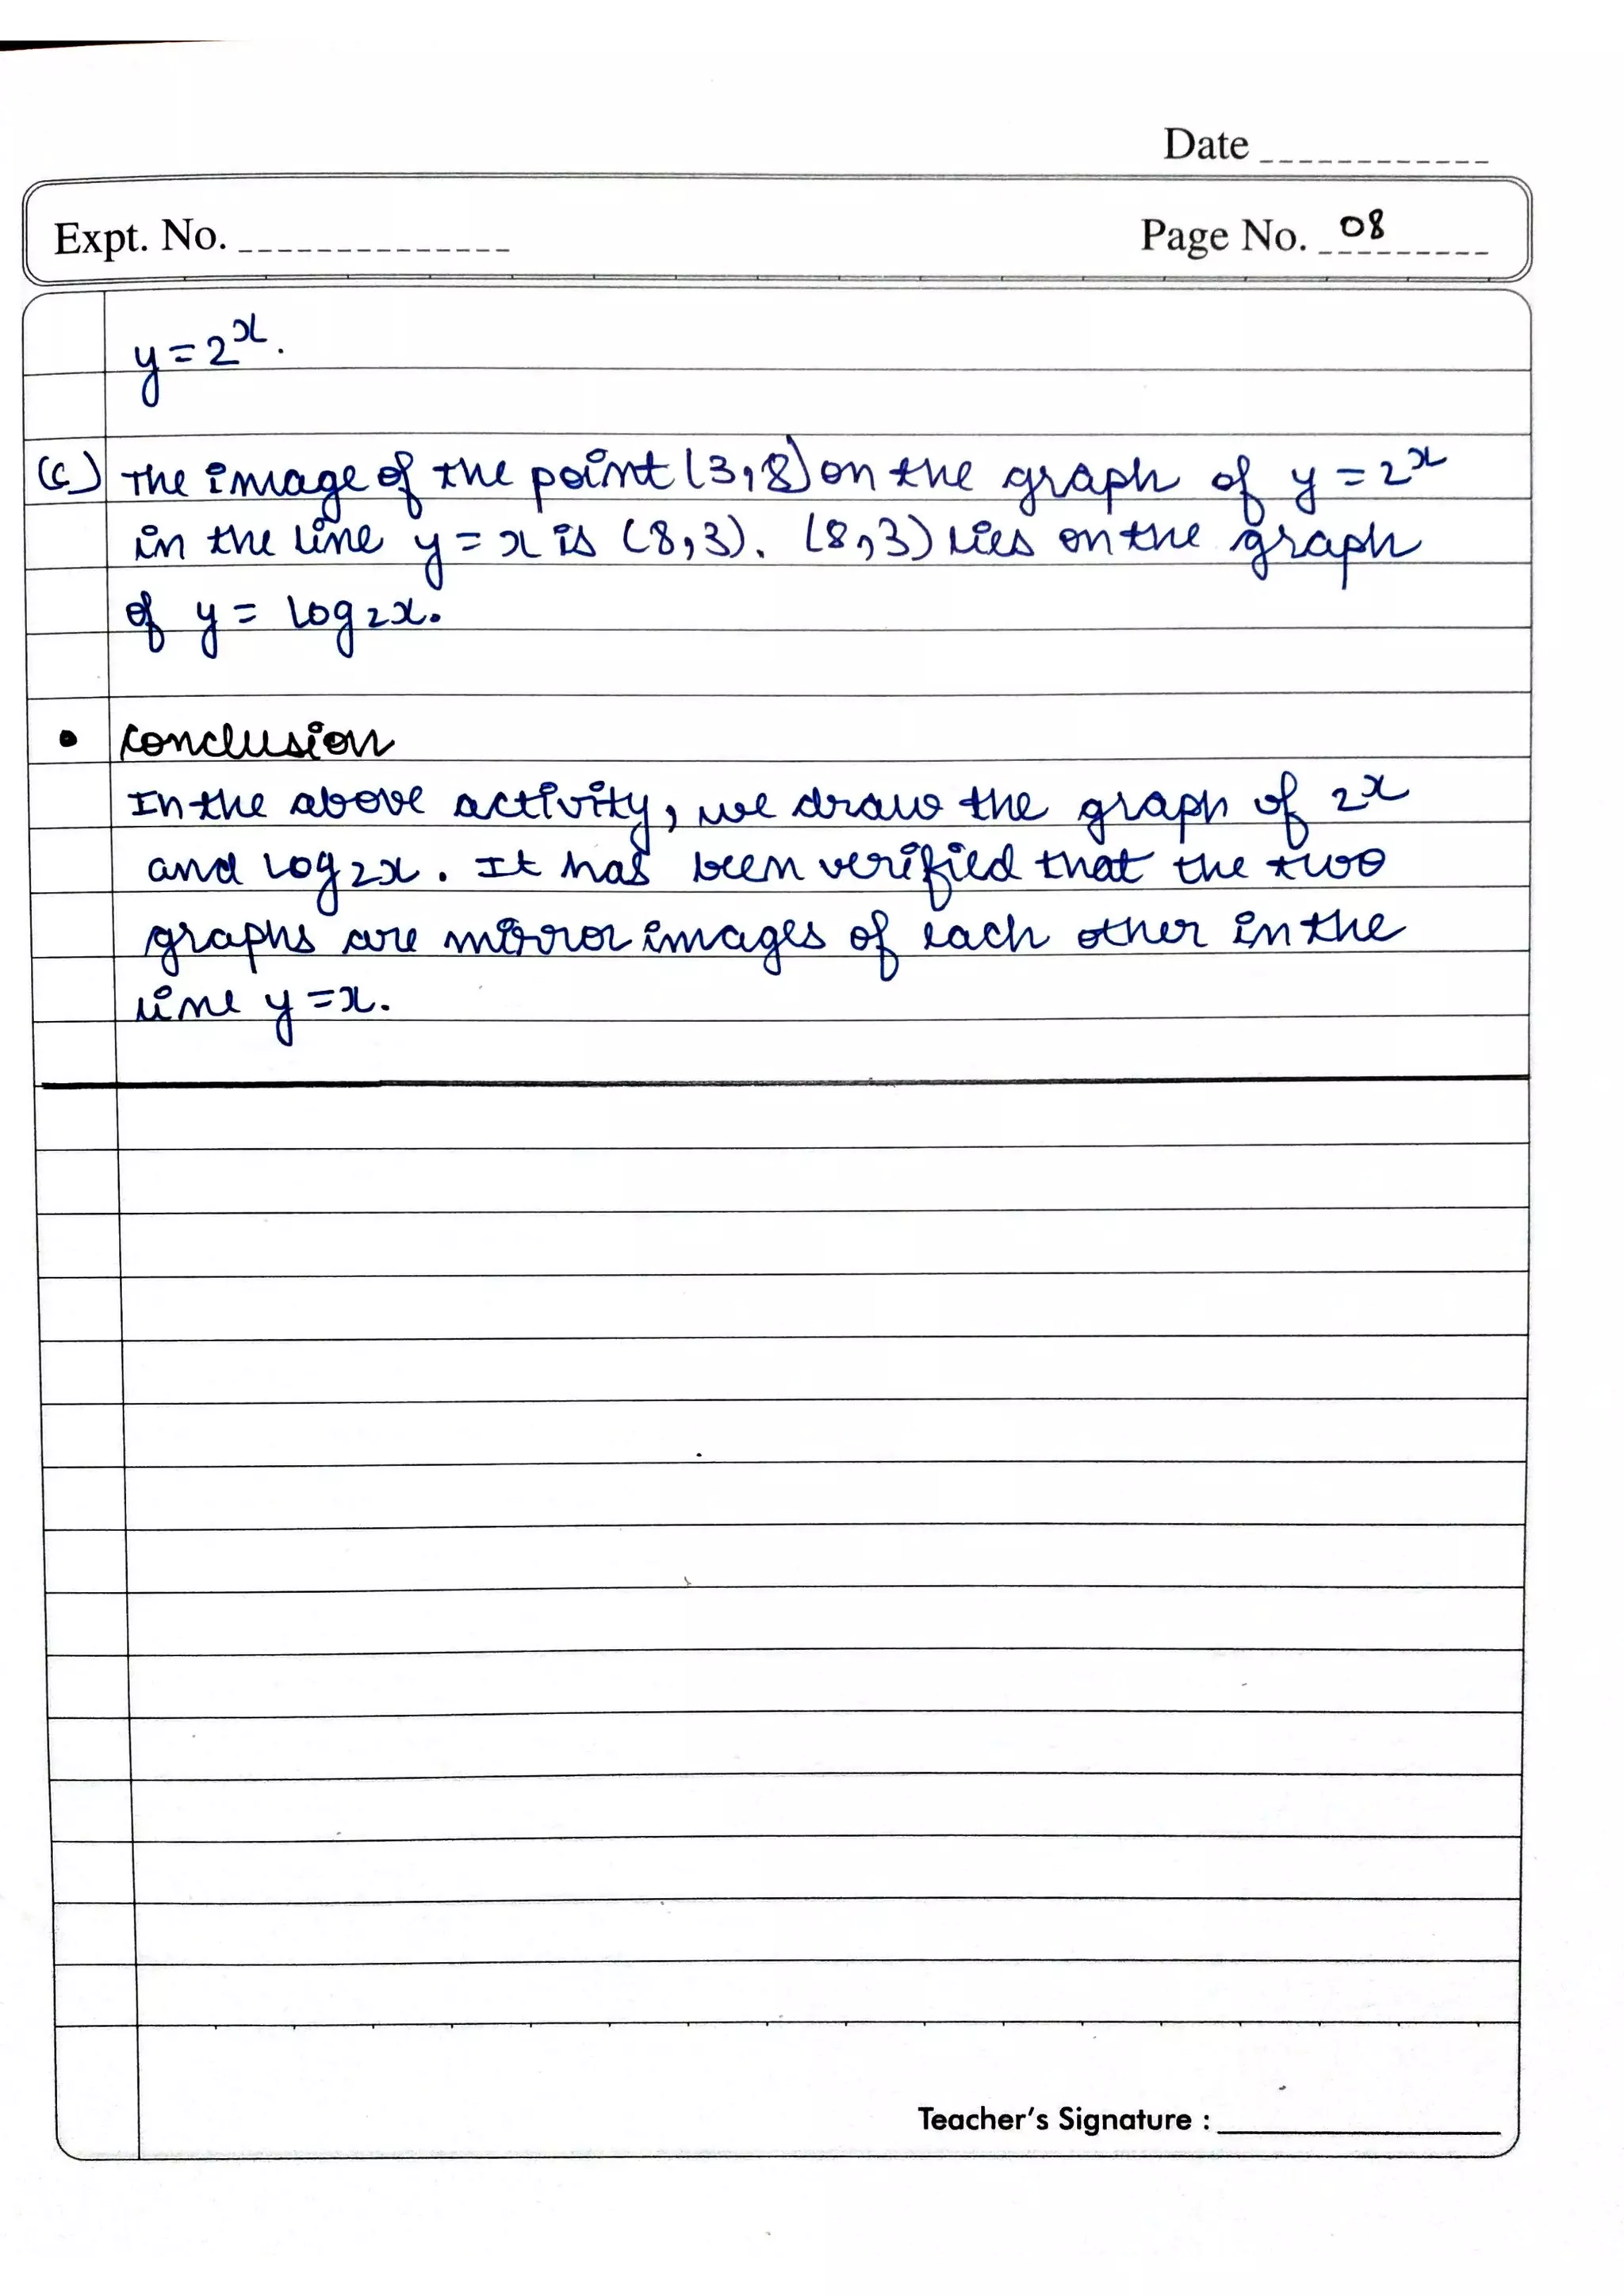 Date
Expt. No.
Page No. 08
y = 2ˣ.
(c) The image of the point (3,8) on the graph of y = 2ˣ
in the line y = x is (8,3). (8,3) lies on the graph
of y = log₂x.
• Conclusion
In the above activity, we draw the graph of 2ˣ
and log₂x. It has been verified that the two
graphs are mirror images of each other in the
line y = x.
Teacher's Signature :